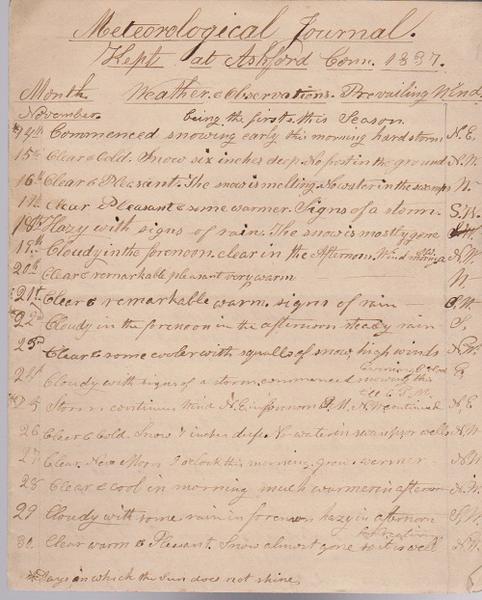 Meteorological Journal.
Kept at Ashford Conn. 1837.
Month Weather & Observations. Prevailing Wind
November. being the first this Season
*14th Commenced snowing early this morning hard storm N.E.
15th Clear & Cold. Snow six inches deep. No frost in the ground N.W.
16th Clear & Pleasant. The snow is melting. No water in the swamps W.
17th Clear Pleasant & some warmer. Signs of a storm. S.W.
18th Hazy with signs of rain. The snow is mostly gone
Cloudy in the forenoon. clear in the Afternoon. Wind N.W.
20th Clear & remarkable pleasant very warm W
21st Clear & remarkable warm. signs of rain S.W
*22d Cloudy in the forenoon in the afternoon steady rain S,
23d Clear & some cooler with squalls of snow, high winds N.W.
24th Cloudy with signs of a storm. commenced snowing this E,
*25 Storm continues Wind N.E. in forenoon P.M. N.W. continued N,E
26 Clear & Cold. Snow 7 inches deep. No water in swamps or wells N.W
27 Clear. New Moon 9 oclock this morning. grows warmer N.W
28 Clear & cool in morning much warmer in afternoon N.W.
29 Cloudy with some rain in forenoon hazy in afternoon S,W.
30 Clear warm & Pleasant. Snow almost gone so it is well N.W.
*Days in which the Sun does not shine